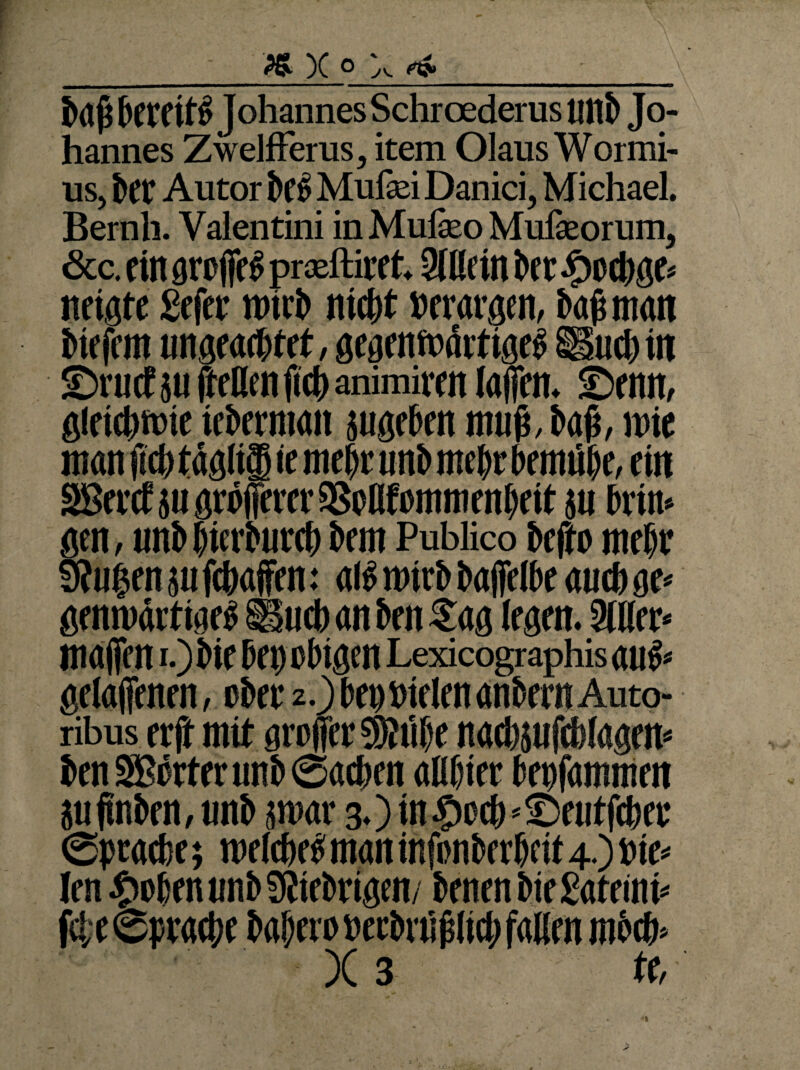 )( o )(
daß bereits Johannes Schrœderus und Jo-
hannes Zwelfferus, item Olaus Wormi-
us, der Autor des Musæi Danici, Michael.
Bernh. Valentini in Musæo Musæorum,
&c. ein grosses præstiret. Allein der Hochge-
neigte Leser wird nicht verargen, daß man
diesem ungeachtet, gegenwärtiges Buch in
Druck zu stellen sich animiren lassen. Denn,
gleichwie iederman zugeben muß, daß, wie
man sich täglich ie mehr und mehr bemühe, ein
Werck zu grösserer Vollkommenheit zu brin-
gen, und hierdurch dem Publico desto mehr
Nutzen zu schaffen: als wird dasselbe auch ge-
genwärtiges Buch an den Tag legen. Aller-
massen 1.) die bey obigen Lexicographis aus-
gelassenen, oder 2.) bey vielen andern Auto-
ribus erst mit grosser Mühe nachzuschlagen-
den Wörter und Sachen allhier beysammen
zu finden, und zwar 3.) in Hoch-Deutscher
Sprache; welches man insonderheit 4.) vie-
len Hohen und Niedrigen/ denen die Lateini-
sche Sprache dahero verdrüßlich fallen möch-
)( 3 te,